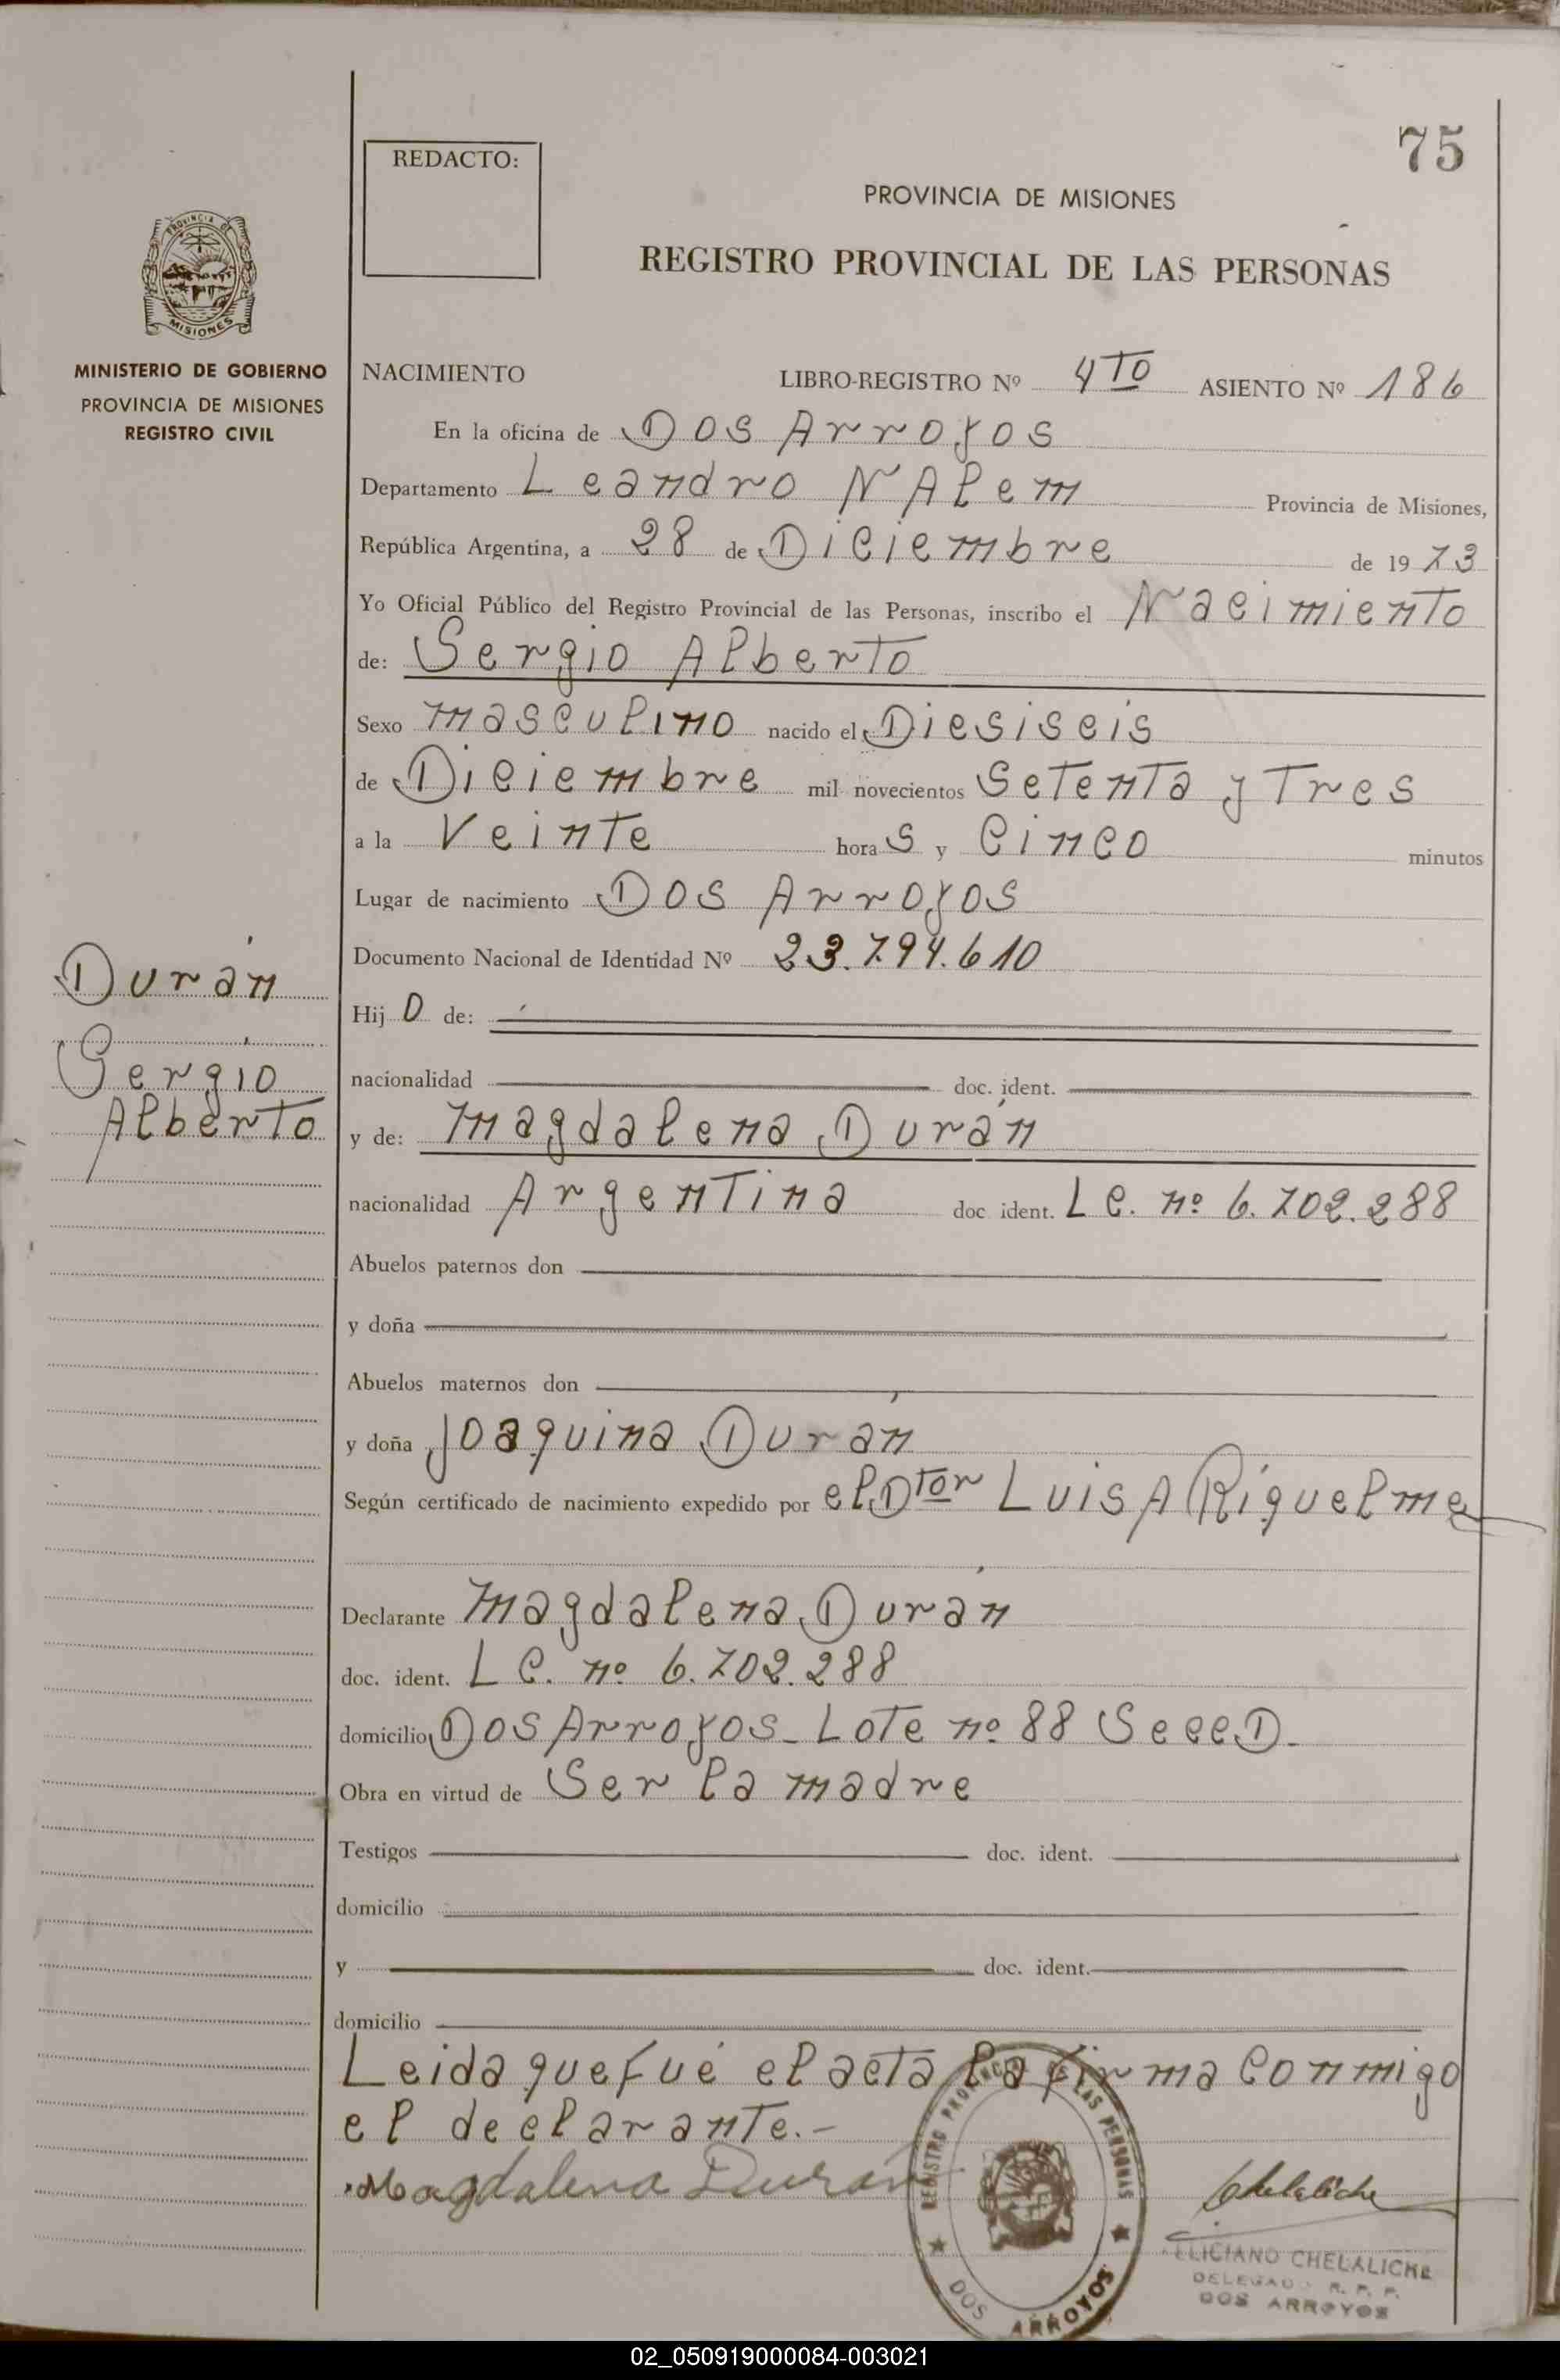 75
REDACTO:
PROVINCIA DE MISIONES
REGISTRO PROVINCIAL DE LAS PERSONAS
PROVINCIA
MISIONES
MINISTERIO DE GOBIERNO
PROVINCIA DE MISIONES
REGISTRO CIVIL
NACIMIENTO LIBRO-REGISTRO Nº 4TO ASIENTO Nº 186
En la oficina de Dos Arroyos
Departamento Leandro N Alem Provincia de Misiones,
República Argentina, a 28 de Diciembre de 1973
Yo Oficial Público del Registro Provincial de las Personas, inscribo el Nacimiento
de: Sergio Alberto
Sexo masculino nacido el Diesiseis
de Diciembre mil novecientos Setenta y Tres
a la Veinte horas y Cinco minutos
Lugar de nacimiento Dos Arroyos
Documento Nacional de Identidad Nº 23.794.610
Durán
Sergio
Alberto
Hijo de:
nacionalidad doc. ident.
y de: Magdalena Durán
nacionalidad Argentina doc. ident. L C. nº 6.702.288
Abuelos paternos don
y doña
Abuelos maternos don
y doña Joaquina Durán
Según certificado de nacimiento expedido por el Dtor Luis A Riquelme
Declarante Magdalena Durán
doc. ident. L C. nº 6.702.288
domicilio Dos Arroyos - Lote nº 88 Secc D.
Obra en virtud de Ser la madre
Testigos doc. ident.
domicilio
y doc. ident.
domicilio
Leida que fué el acta la firma Conmigo
el declarante.-
Magdalena Durán
Chelaliche
REGISTRO PROVINCIAL DE LAS PERSONAS
DOS ARROYOS
FELICIANO CHELALICHE
DELEGADO R. P. P.
DOS ARROYOS
02_050919000084-003021